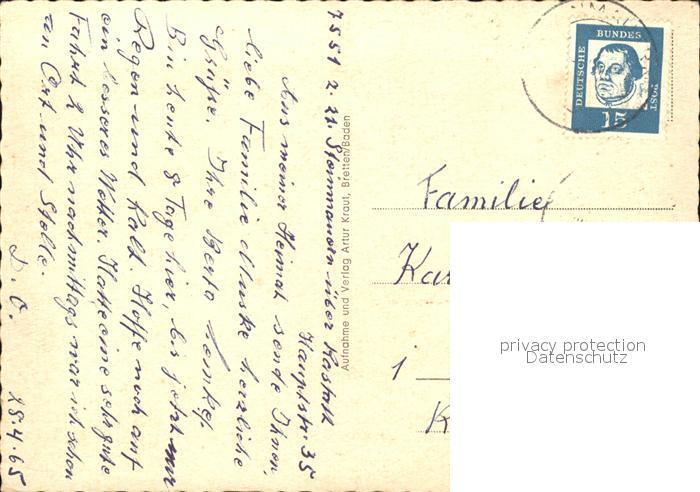 7551 z. Zt. Steinmauern über Rastatt
Hauptstr. 35
Aus meiner Heimat sende Ihnen,
liebe Familie herzliche
Grüße. Ihre Berta
Bin heute 8 Tage hier, bis jetzt nur
Regen und kalt. Hoffe noch auf
ein besseres Wetter. Hatte eine sehr gute
Fahrt 2 Uhr nachmittags war ich schon
an Ort und Stelle.
D. O.
28.4.65
Aufnahme und Verlag Artur Kraut, Bretten/Baden
DEUTSCHE BUNDES POST
15
Familie
Kar
1
K
privacy protection
Datenschutz